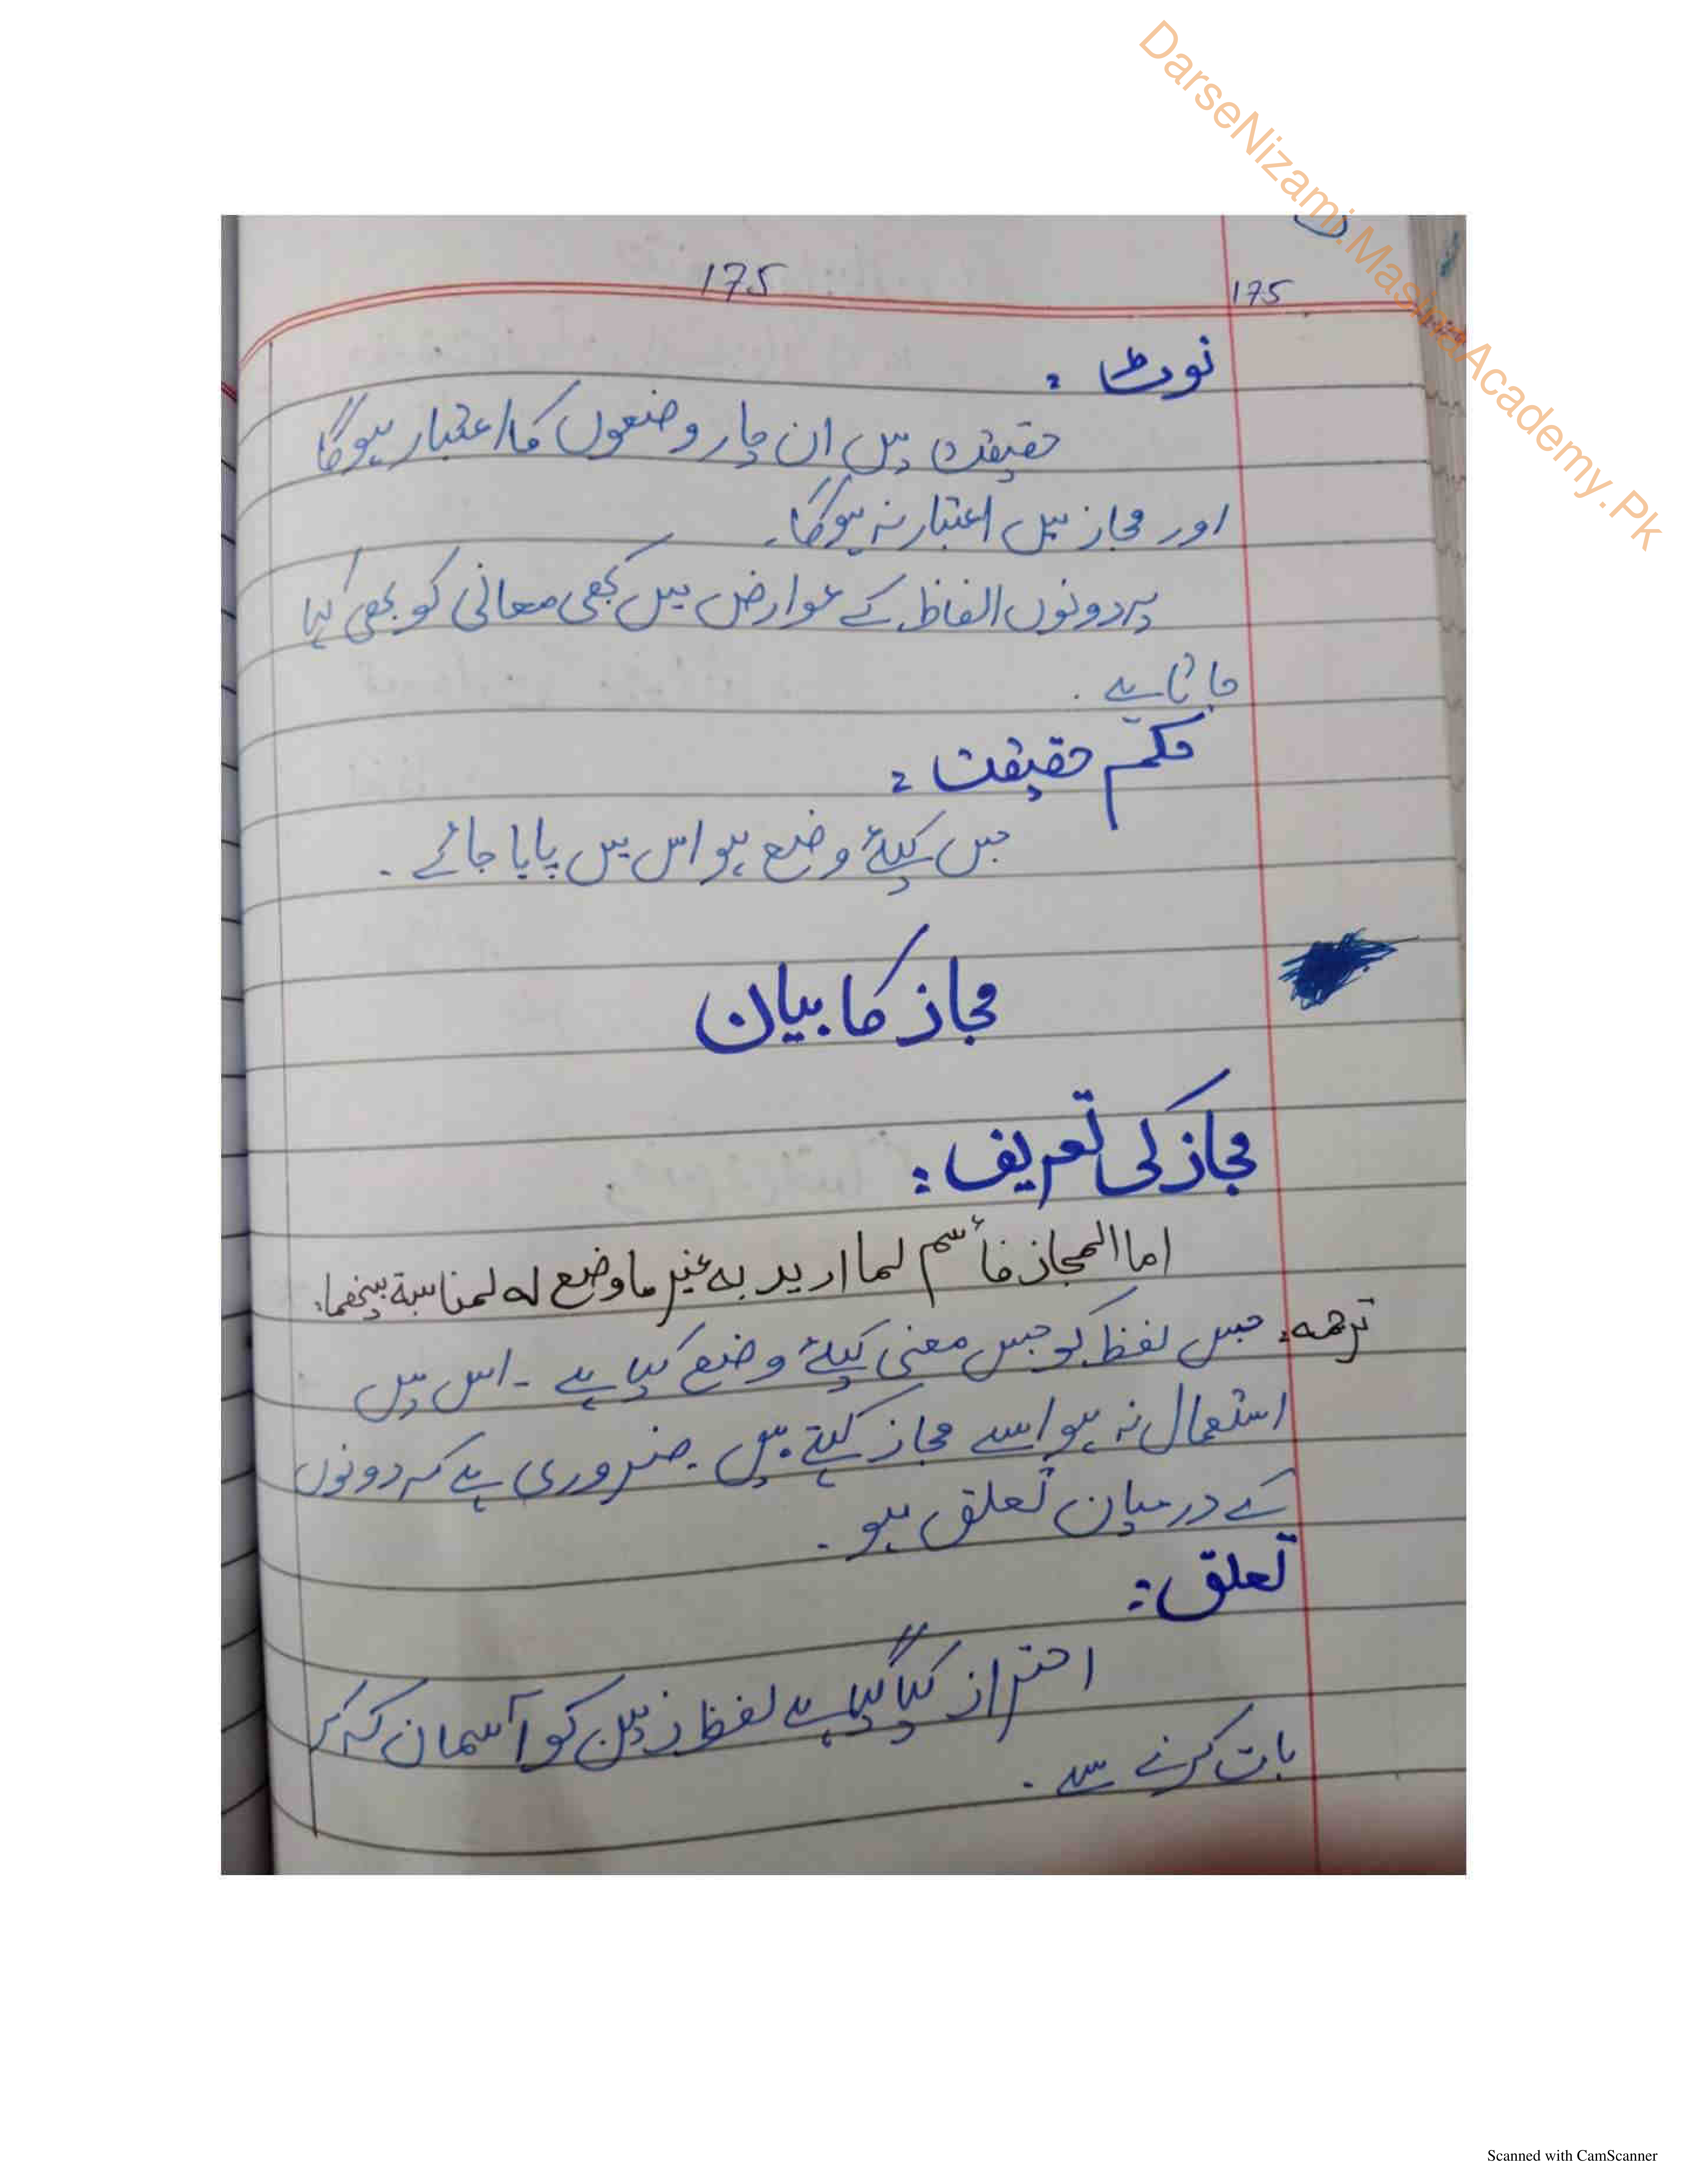 DarseNizami.MashqAcademy.Pk
175
175
نوٹ :
حقیقت میں ان چار وضعوں کا اعتبار ہوگا
اور مجاز میں اعتبار نہ ہوگا۔
یہ دونوں الفاظ کے عوارض ہیں کبھی معانی کو بھی کہا
جاتا ہے .
حکم حقیقت :
جس کیلئے وضع ہو اس میں پایا جائے .
مجاز کا بیان
مجاز کی تعریف :
اما المجاز فأسم لما اريد به غير ما وضع له لمناسبة بينهما:
ترجمہ: جس لفظ کو جس معنی کیلئے وضع کیا ہے ۔ اس میں
استعمال نہ ہو اسے مجاز کہتے ہیں . ضروری ہے کہ دونوں
کے درمیان تعلق ہو .
تعلق :
احتراز کیا گیا ہے لفظ زمین کو آسمان کہہ کر
بات کرنے سے .
Scanned with CamScanner